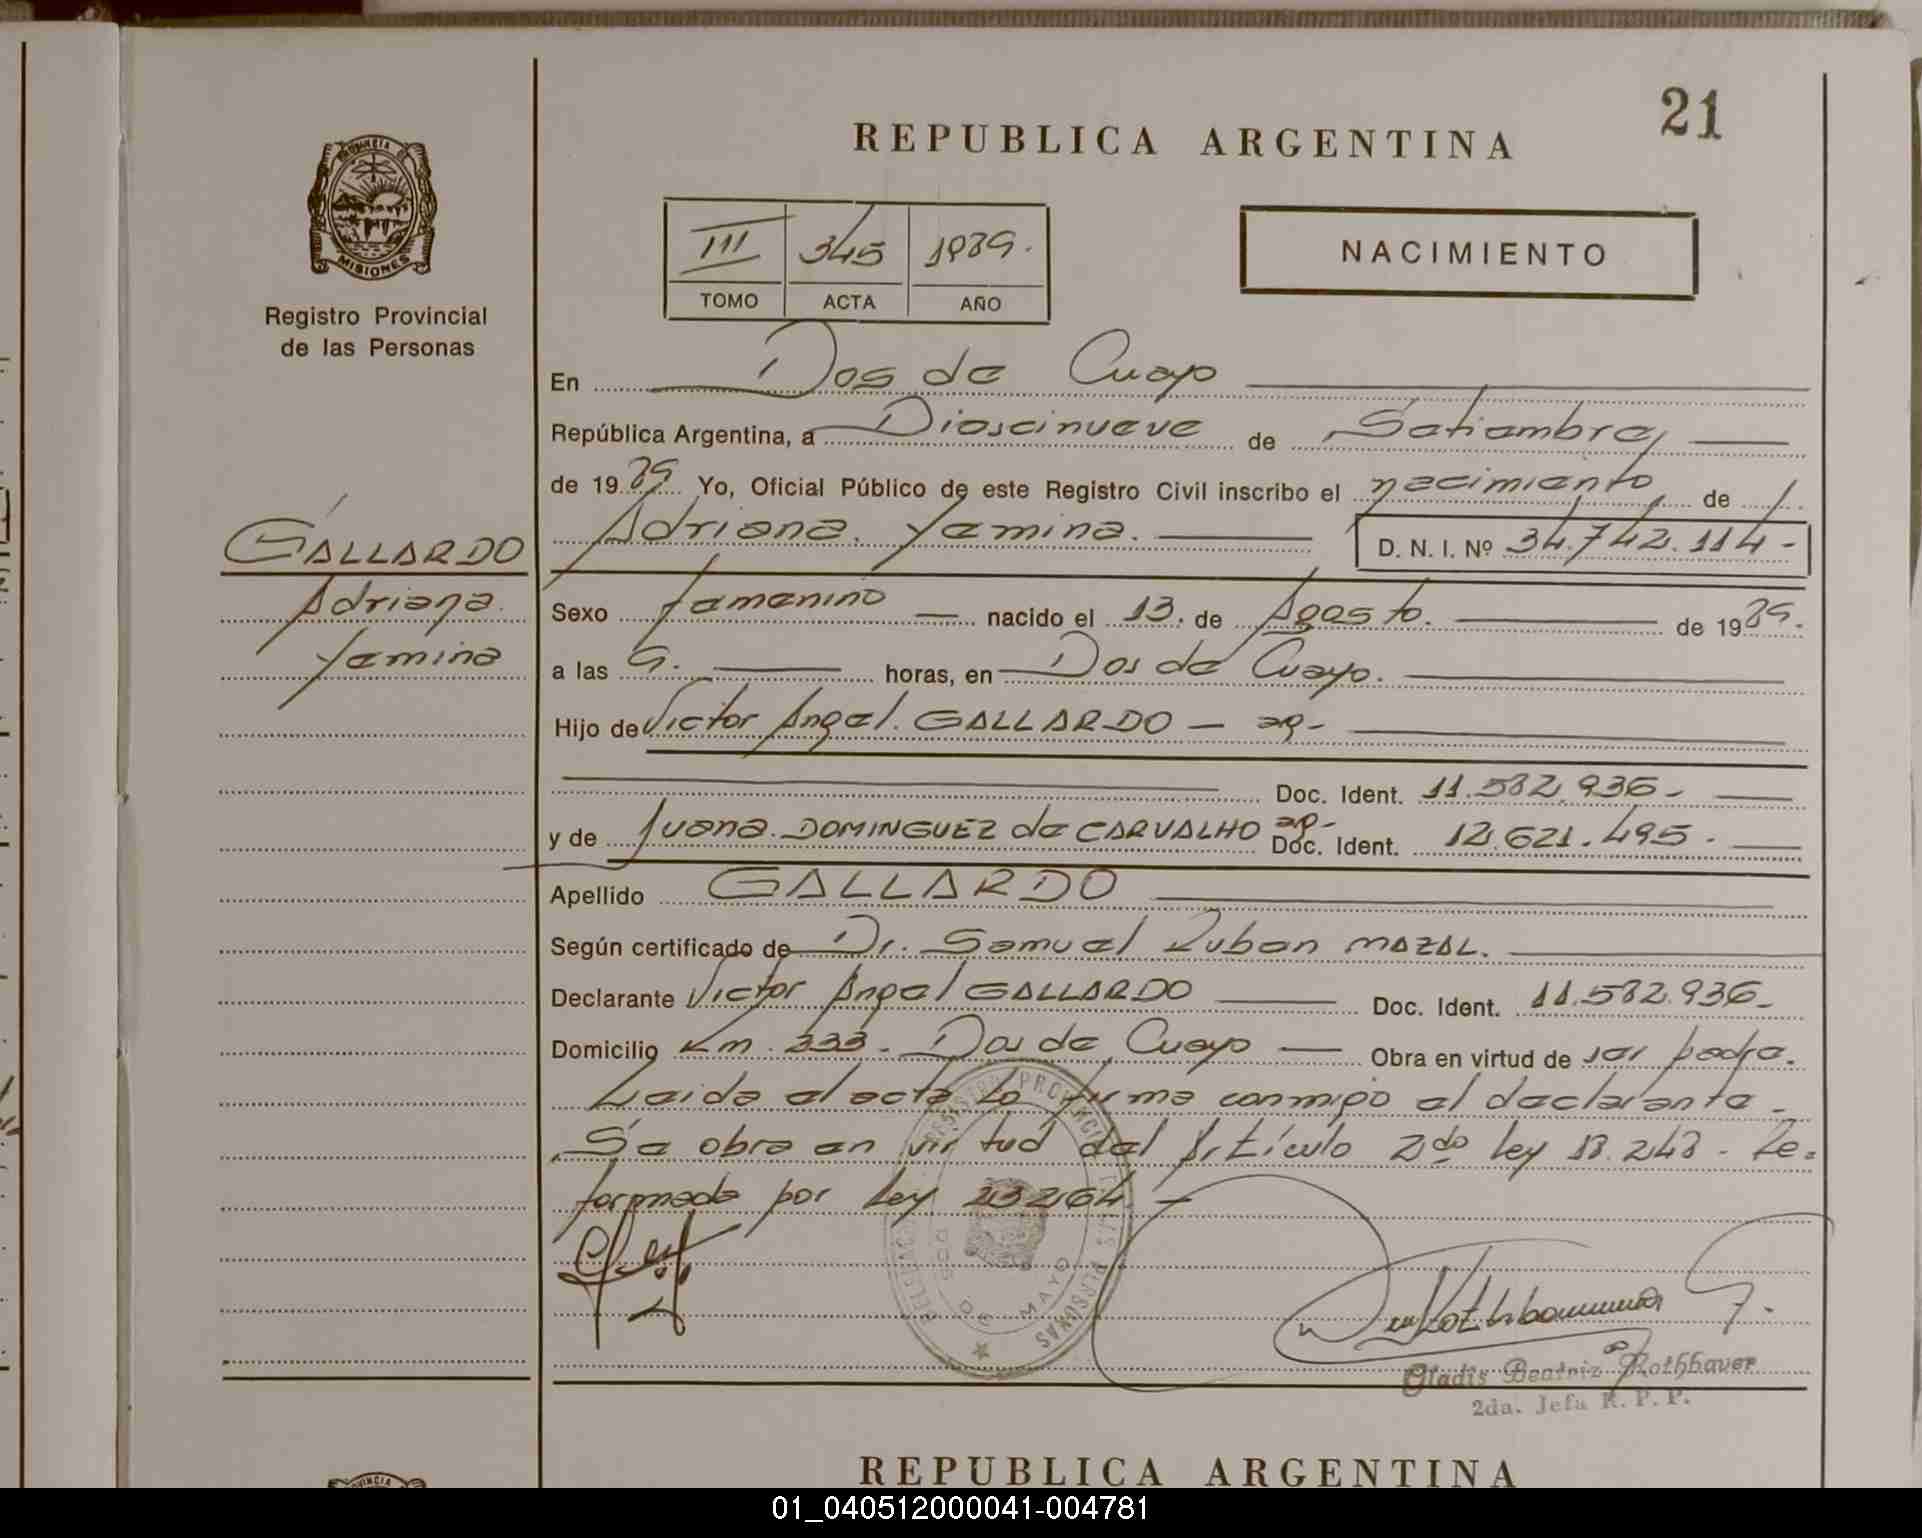 21
REPUBLICA ARGENTINA
PROVINCIA DE
MISIONES
Registro Provincial
de las Personas
III 345 1989.
TOMO ACTA AÑO
NACIMIENTO
En Dos de Mayo
República Argentina, a Diescinueve de Setiembre,
de 1989 Yo, Oficial Público de este Registro Civil inscribo el nacimiento de
Adriana. Yamina.
D. N. I. Nº 34.742.114-
GALLARDO
Adriana.
Yamina
Sexo femenino nacido el 13. de Agosto. de 1989.
a las 9. horas, en Dos de Mayo.
Hijo de Victor Angel. GALLARDO - ag-
Doc. Ident. 11.582.936-
y de Juana. DOMINGUEZ de CARVALHO ag- Doc. Ident. 12.621.495.
Apellido GALLARDO
Según certificado de Dr. Samuel Ruben MAZAL.
Declarante Victor Angel GALLARDO Doc. Ident. 11.582.936-
Domicilio Km. 233. Dos de Mayo Obra en virtud de ser padre.
Leida el acta la firma conmigo el declarante.
Se obra en virtud del Artículo 2do ley 18.248 - Re=
formada por ley 23264 -
REGISTRO PROVINCIAL DE LAS PERSONAS
DELEGACION
DOS DE MAYO
Gladis Beatriz Rothbauer
2da. Jefa R. P. P.
REPUBLICA ARGENTINA
PROVINCIA
01_040512000041-004781